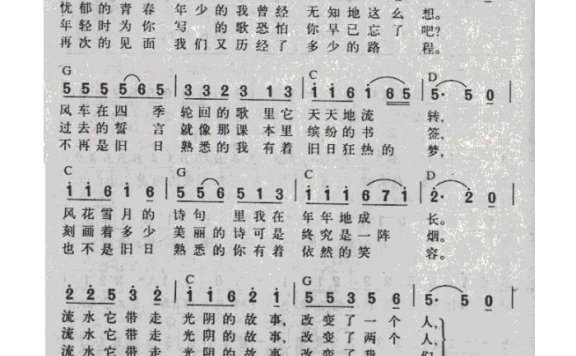 忧郁的青春 年少的我曾经 无知地这么 想。
年轻时为你 写 的歌恐怕 你早已忘了 吧？
再次的见面 我们又历经了 多少的路 程。
G C D
5 5 5 5 6 5 | 3 3 2 3 1 3 | 1 1 6 1 6 5 | 5· 5 0
风车在四 季 轮回的歌 里它 天天地流 转，
过去的誓 言 就像那课 本里 缤纷的书 签，
不再是旧 日 熟悉的我 有着 旧日狂热的 梦，
C G C D
1 1 6 1 6 | 5 5 6 5 1 3 | 1 1 1 6 7 1 | 2·
风花雪月的 诗句 里我在 年年地成 长。
刻画着多少 美丽的诗可是 终究是一阵 烟。
也不是旧日 熟悉的你有着 依然的笑 容。
C G
2 2 5 3 2 | 1 1 6 2 1 | 5 5 3 5 6 | 5· 5 0
流水它带走 光阴的故事， 改变了一个 人，
流水它带走 光阴的故事， 改变了两个 人，
流水它带走 光阴的故事， 改变了我 们